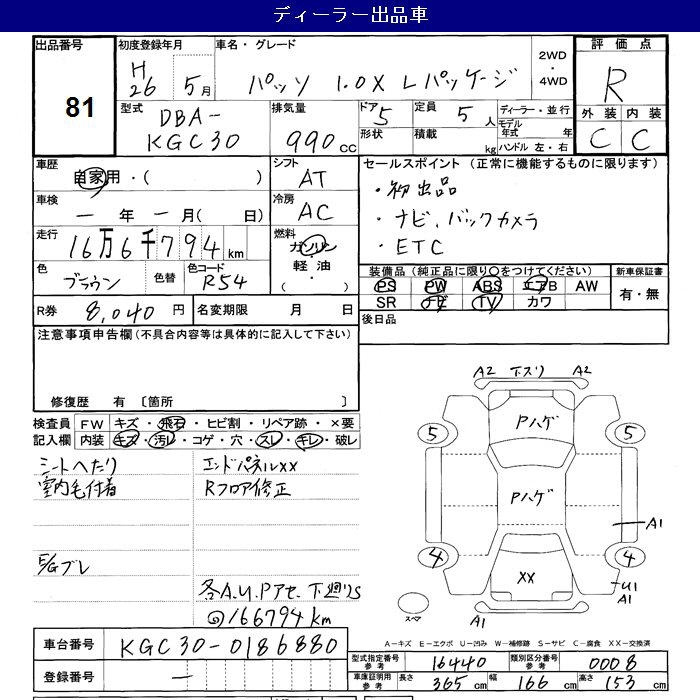 ディーラー出品車
出品番号
81
初度登録年月
H26 5月
車名・グレード
パッソ 1.0X Lパッケージ
2WD
・
4WD
評価点
R
外装 内装
C C
型式
DBA-
KGC30
排気量
990cc
ドア 5
形状
定員 5人
積載 kg
ディーラー・並行
モデル年式 年
ハンドル 左・右
車歴
自家用・( )
シフト
AT
車検
一年一月( 日)
冷房
AC
走行
16万6千794km
燃料
ガソリン
軽・油
・( )
色
ブラウン
色替
色コード
R54
R券 8,040円
名変期限 月 日
セールスポイント (正常に機能するものに限ります)
・初出品
・ナビ、バックカメラ
・ETC
装備品(純正品に限り○をつけてください)
PS PW ABS エアB AW
SR ナビ TV カワ
新車保証書
有・無
後日品
注意事項申告欄(不具合内容等は具体的に記入して下さい)
修復歴 有 〔箇所 〕
検査員記入欄
FW キズ・飛石・ヒビ割・リペア跡・×要
内装 キズ・汚レ・コゲ・穴・スレ・キレ・破レ
シートへたり
室内毛付着
E/Gブレ
エンドパネルXX
Rフロア修正
各A.U.Pアセ、下廻りS
@166794km
A2 下スリ A2
Pハゲ
5 5
Pハゲ
A1
4 4
XX
U1
A1 A1
スペア
A-キズ E-エクボ U-凹み W-補修跡 S-サビ C-腐食 XX-交換済
車台番号 KGC30-0186880
登録番号 一
型式指定番号 参考 16440
類別区分番号 参考 0008
車庫証明用 参考 長さ 365cm 幅 166cm 高さ 153cm